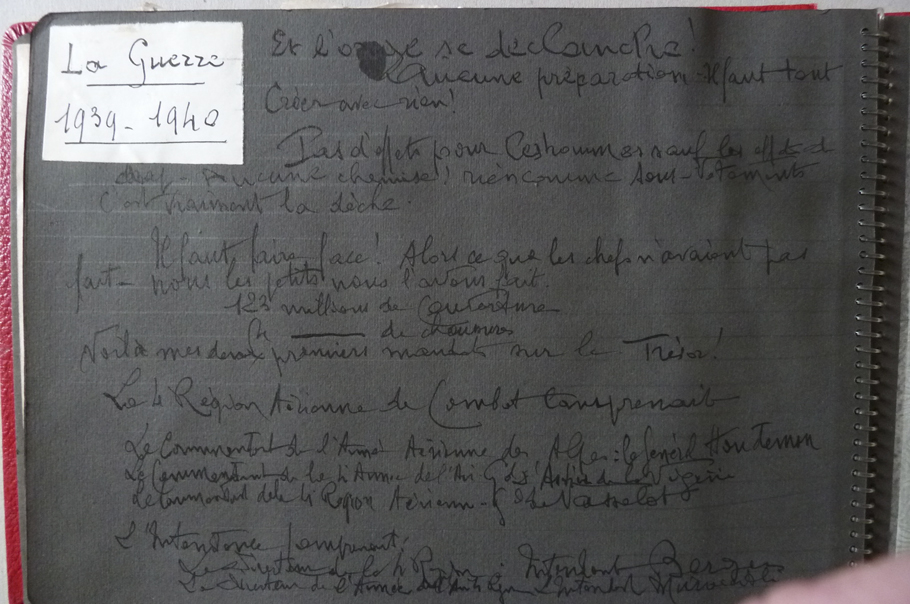 La Guerre
1939-1940
Et l'orage se déclancha!
Aucune préparation - Il faut tout
Créer avec rien!
Pas d'effets pour les hommes sauf les
Aucune chemise, rien comme sous-vêtements
C'est vraiment la dèche.
Il faut faire face! Alors ce que les chefs n'avaient pas
fait - nous les petits nous l'avons fait.
123 millions de couverture
de chaussures
Voilà mes deux premiers mandats sur le Trésor!
La 4 Région Aérienne de Combat comprenait
Le Commandant de l'Armée Aérienne des Alpes: le Général Houdemon
Le Commandant de la 4 Armée de l'Air Gal d'Astier de la Vigerie
Le Commandant de la 4 Région Aérienne - Gal de Vasselot
L'Intendance comprenait:
Le Directeur de la 4 Région : Intendant
Le Directeur de l'Armée l'Intendant